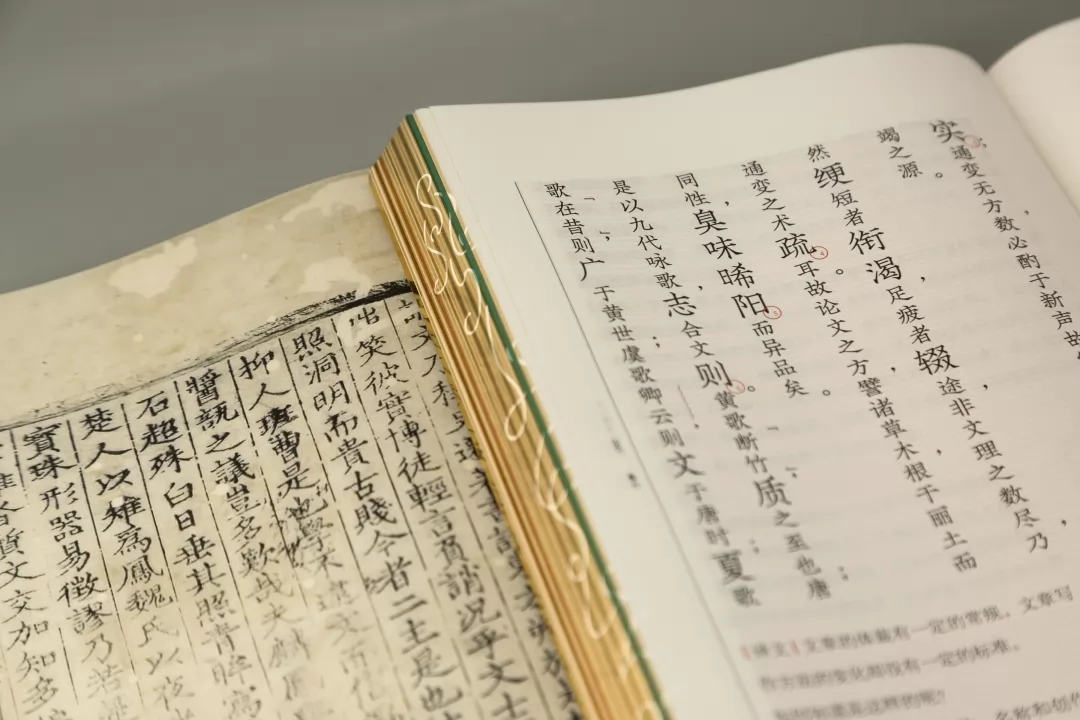 实③，通变无方，数必酌于新声；故
竭之源。
然绠短者衔渴，足疲者辍途，非文理之数尽，乃
通变之术疏④耳。故论文之方，譬诸草木，根干丽土而
同性，臭味晞阳⑤而异品矣。
是以九代咏歌，志合文则①。黄歌「断竹」，质之至也；唐
歌「在昔」，则广于黄世；虞歌卿云，则文于唐时；夏歌
【译文】文章的体裁有一定的常规，文章写
作方法的变化却没有一定的标准。
出笑彼實博徒輕言負誚況乎文士
照洞明而貴古賤今者二主是也
抑人班曹是也學不逮文而信
醬瓿之議豈多歎哉夫麟鳳
石超殊白日垂其照青眸寫
楚人以雉爲鳳魏氏以夜
寶珠形器易徵謬乃若
質文交加知多